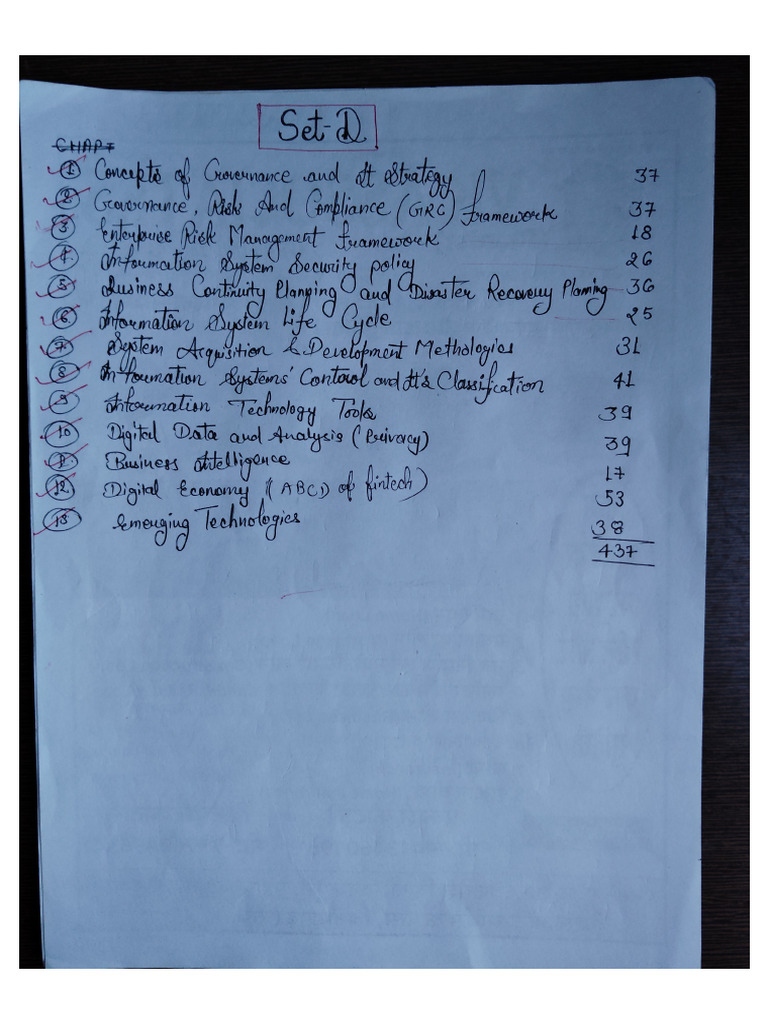 Set-D
CHAPT
1 Concepts of Governance and It Strategy 37
2 Governance, Risk And Compliance (GRC) Framework 37
3 Enterprise Risk Management Framework 18
4 Information System Security policy 26
5 Business Continuity Planning and Disaster Recovery Planing 36
6 Information System Life Cycle 25
7 System Acquisition & Development Methologies 31
8 Information Systems' Control and It's Classification 41
9 Information Technology Tools 39
10 Digital Data and Analysis (Privacy) 39
11 Business Intelligence 17
12 Digital Economy ((ABCD of fintech) 53
13 Emerging Technologies 38
437